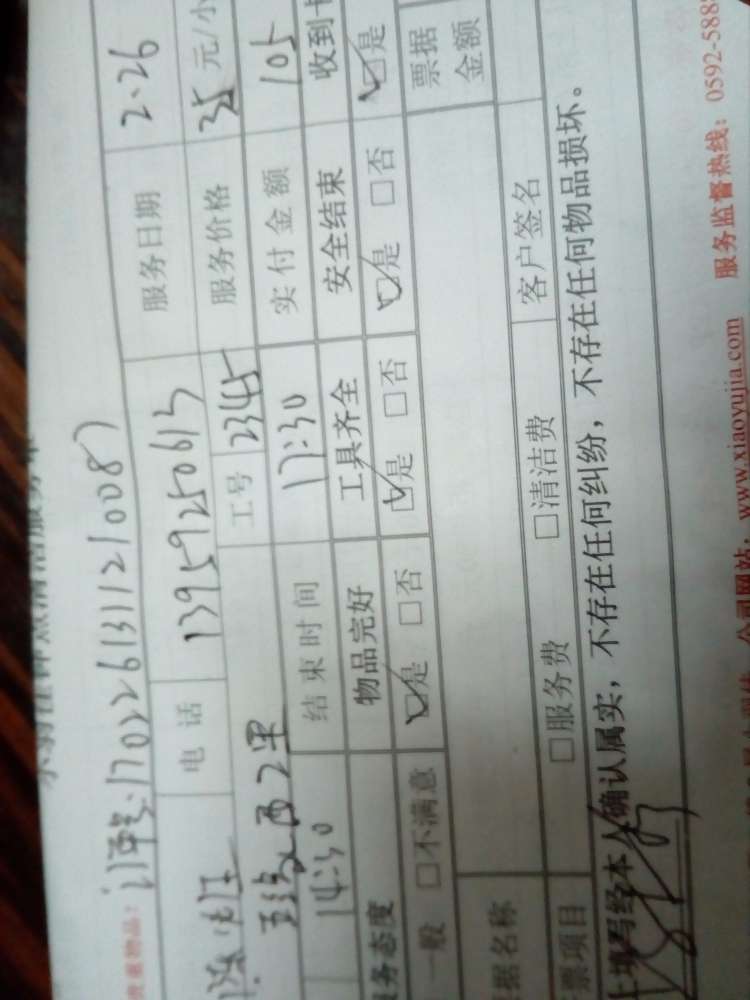 贵重物品:
订单号:1702261311210087
电话 13959250613 服务日期 2.26
西2里 工号 2345 服务价格 35 元/小
14:30 结束时间 17:30 实付金额 105
务态度 物品完好 工具齐全 安全结束 收到
一般 □不满意 ☑是 □否 ☑是 □否 ☑是 □否 ☑是
据名称 票据金额
票项目 □服务费 □清洁费 客户签名
上填写经本人确认属实，不存在任何纠纷，不存在任何物品损坏。
公司网站：www.xiaoyujia.com 服务监督热线：0592-588